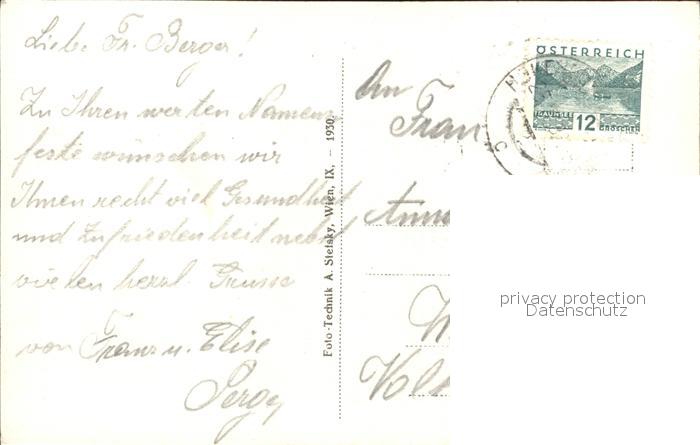 Liebe Fr. Berger!
Zu Ihren werten Namens
feste wünschen wir
Ihnen recht viel Gesundheit
und Zufriedenheit nebst
vielen herzl. Grüsse
von Franz u. Elise
Foto-Technik A. Stefsky, Wien, IX. – 1930.
An
Frau
ÖSTERREICH
TRAUNSEE 12 GROSCHEN
privacy protection
Datenschutz